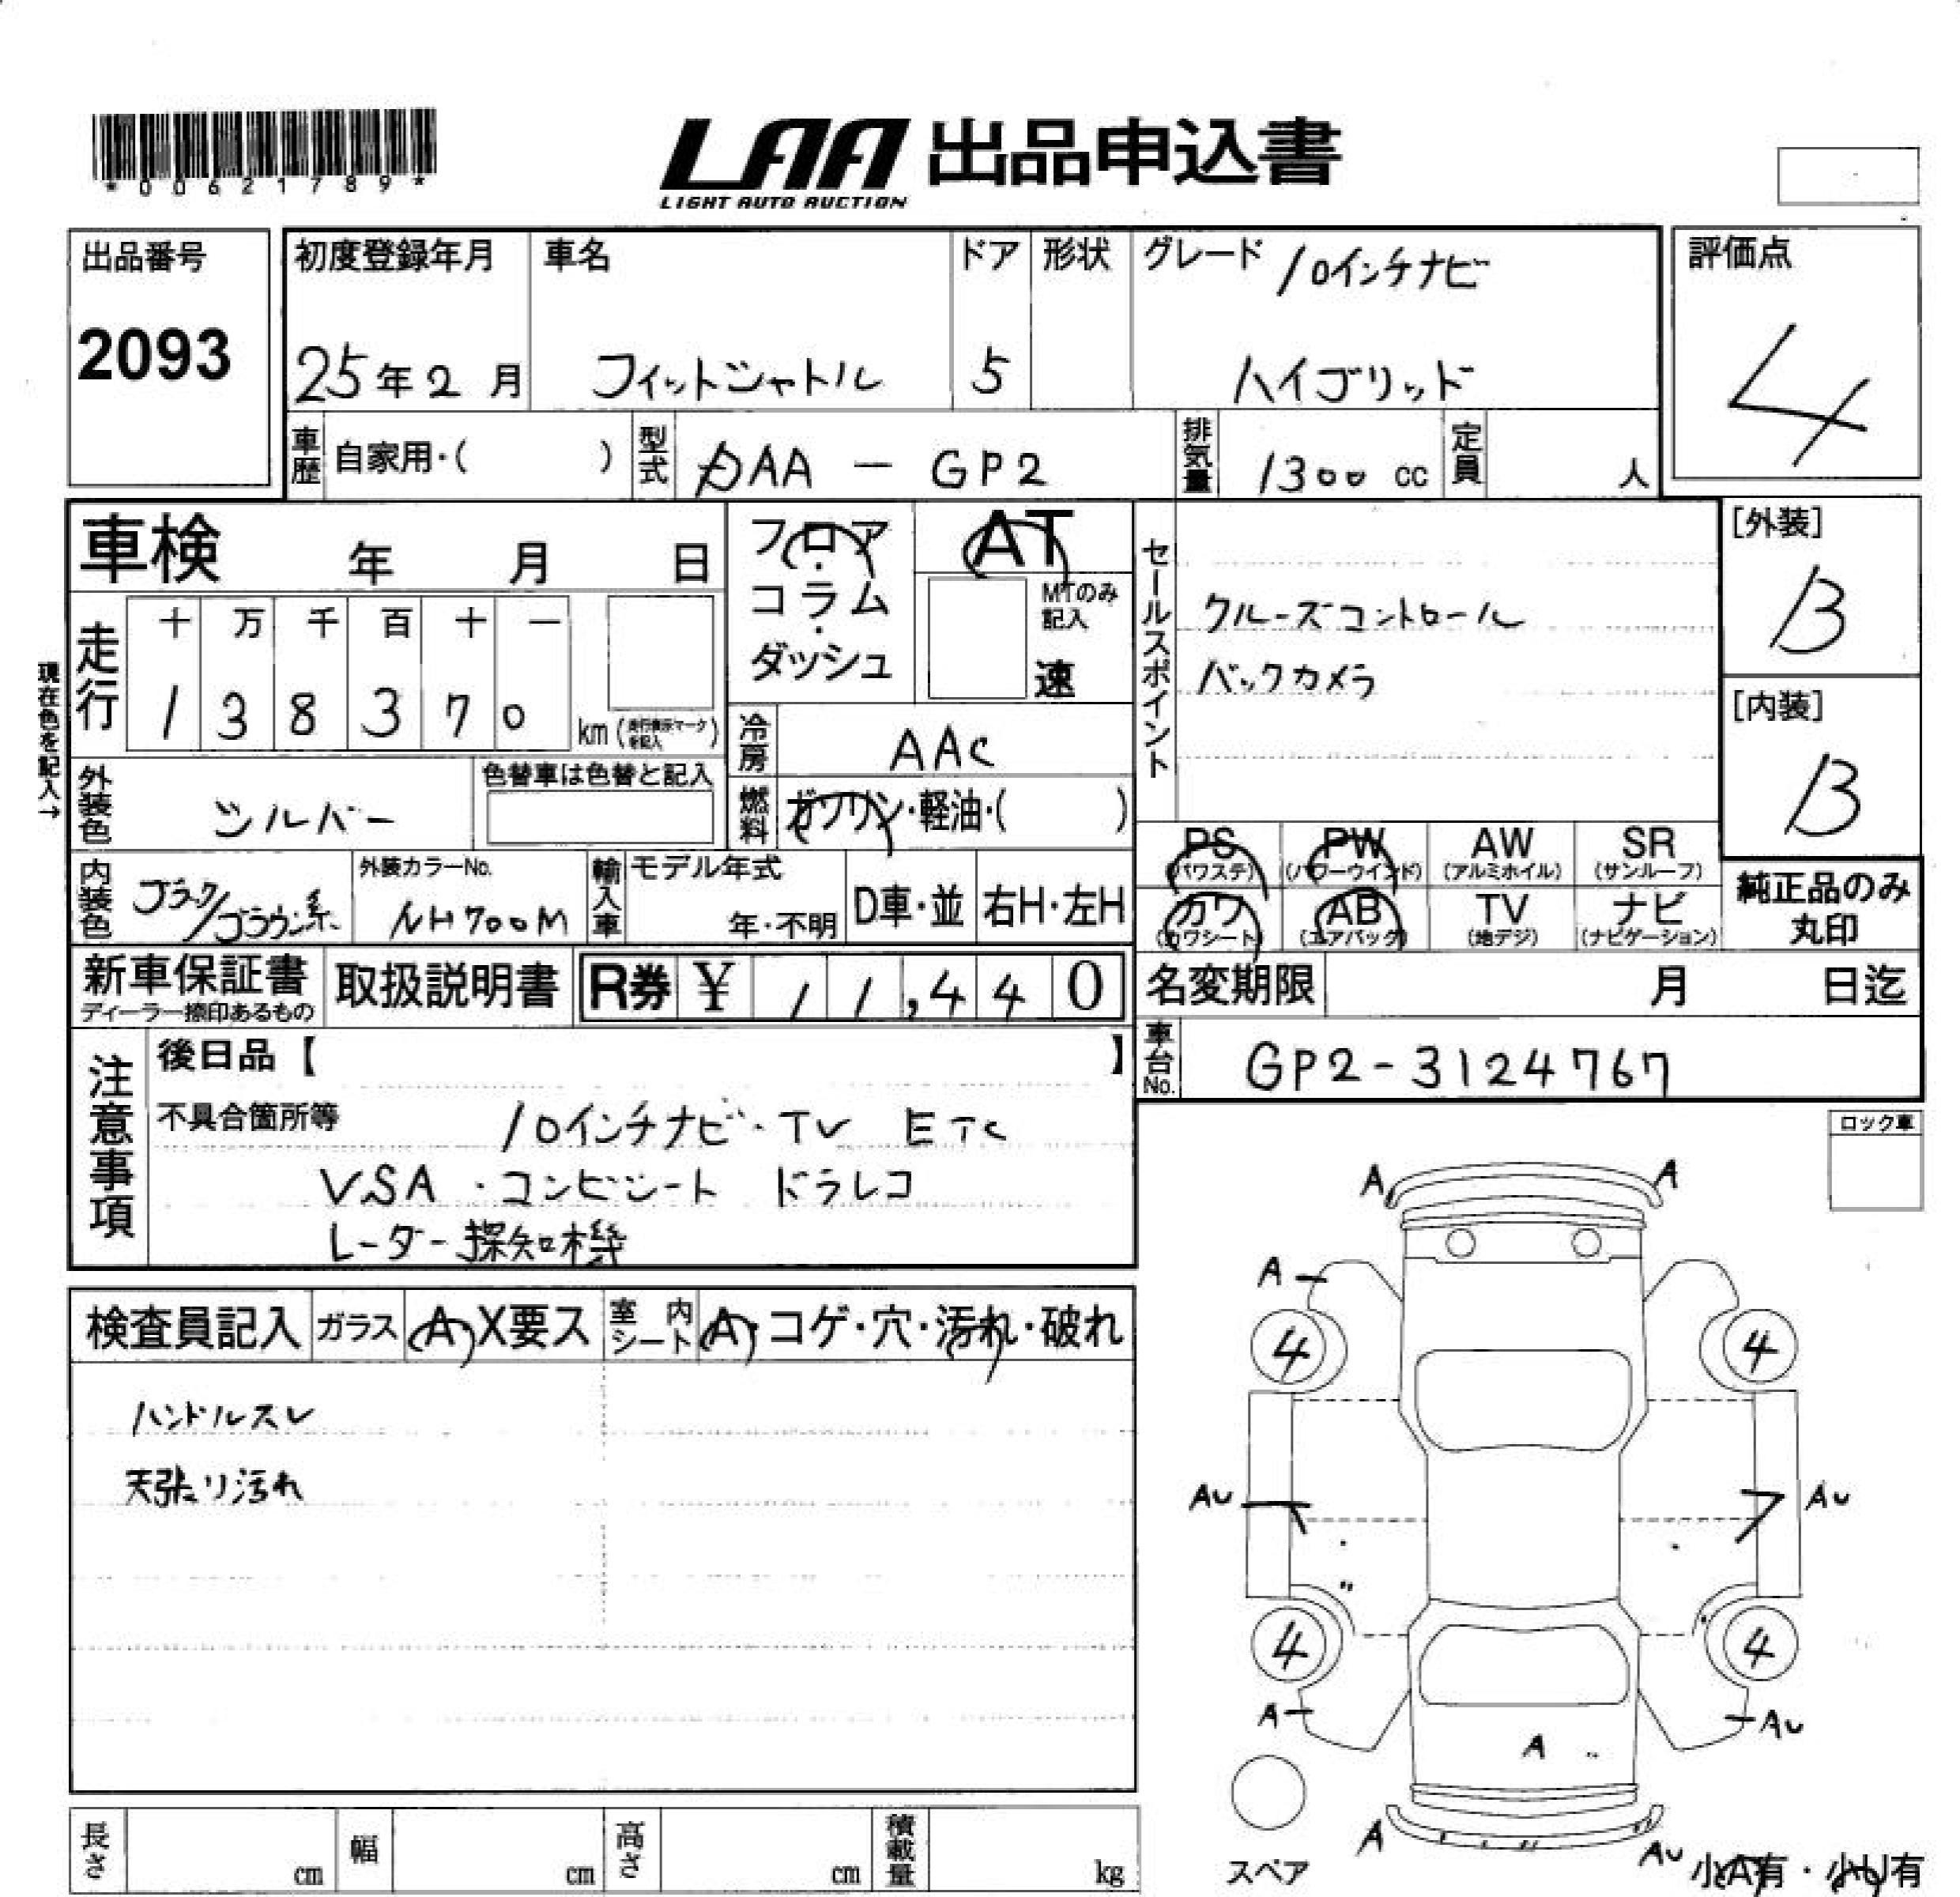 *00621789*
LAA 出品申込書
LIGHT AUTO AUCTION
出品番号
2093
初度登録年月
25年2月
車名
フィットシャトル
ドア
5
形状
グレード 10インチナビ
ハイブリッド
評価点
4
車歴 自家用・( )
型式 DAA - GP2
排気量 1300 cc
定員 人
車検 年 月 日
フロア・コラム・ダッシュ
AT
MTのみ記入
速
セールスポイント
クルーズコントロール
バックカメラ
[外装]
B
[内装]
B
現在色を記入→
走行
十 万 千 百 十 一
1 3 8 3 7 0 km
冷房 AAC
外装色 シルバー
色替車は色替と記入
燃料 ガソリン・軽油・( )
PS (パワステ)
PW (パワーウインド)
AW (アルミホイル)
SR (サンルーフ)
カワ (カワシート)
AB (エアバック)
TV (地デジ)
ナビ (ナビゲーション)
純正品のみ丸印
内装色 ブラック/ブラウン系
外装カラーNo. NH700M
輸入車 モデル年式 年・不明
D車・並
右H・左H
新車保証書
ディーラー捺印あるもの
取扱説明書
R券 ¥ 11,440
名変期限 月 日迄
車台No. GP2-3124767
注意事項
後日品【 】
不具合箇所等 10インチナビ・TV ETC
VSA ・コンビシート ドラレコ
レーダー探知機
ロック車
検査員記入 ガラス A・X要ス 室内シート A・コゲ・穴・汚れ・破れ
ハンドルスレ
天張り汚れ
A A
A
4 4
AU AU
4 4
A AU
A
A AU
スペア
小A有・小U有
長さ cm
幅 cm
高さ cm
積載量 kg